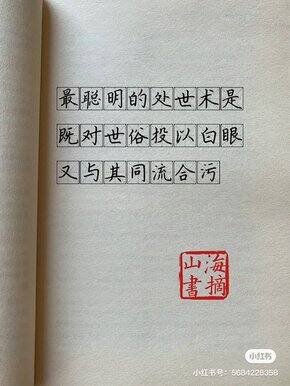 最聪明的处世术是
既对世俗投以白眼
又与其同流合污
山海书摘
小红书
小红书号：5684228358